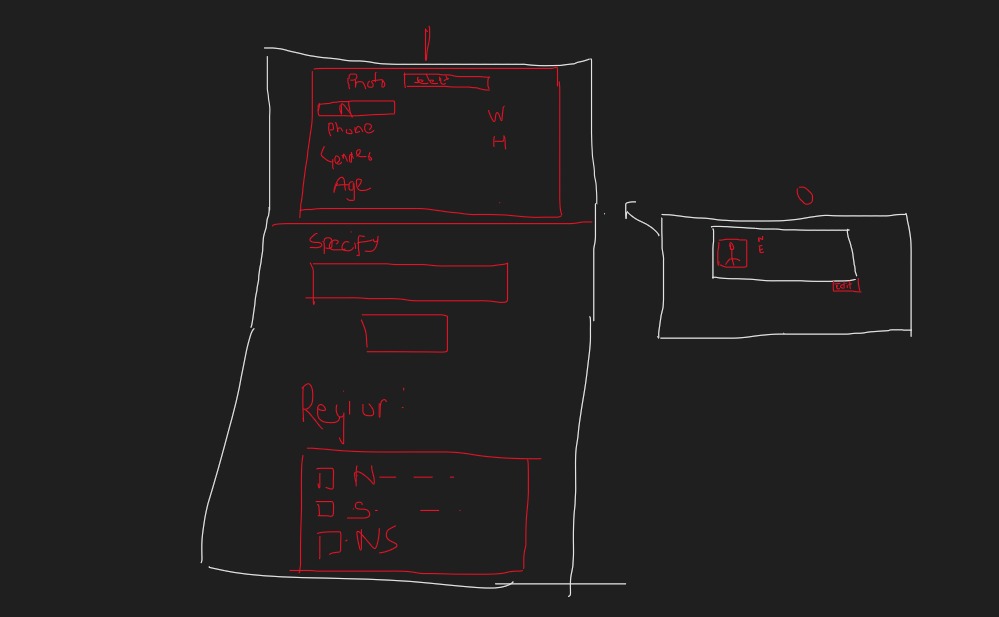 Photo
N
W
Phone
H
Gender
Age
Specify
Region:
N
S.
NS
O
N
E
Edit